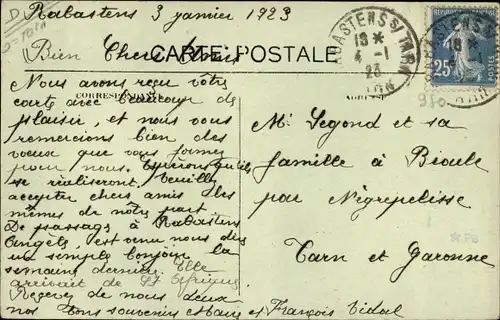 Rabastens 3 janvier 1923
CARTE POSTALE
Bien Chers Amis
CORRESPONDANCE
Nous avons reçu votre
carte avec beaucoup de
plaisir, et nous vous
remercions bien des
voeux que vous formez
pour nous. Espérons qu'ils
se réaliseront, Veuillez
accepter chers amis les
mêmes de nôtre part
De passage à Rabastens
Angèle, est venue nous dire
un simple bonjour la
semaine dernière. Elle
arrivait de St Affrique
Recevez de nous deux
nos bons souvenirs
et François Vidal
M. Segond et sa
famille à Bioule
par Nègrepelisse
Tarn et Garonne
RABASTENS S/ TARN
18 *
4 - 1
23
25
950
*FB